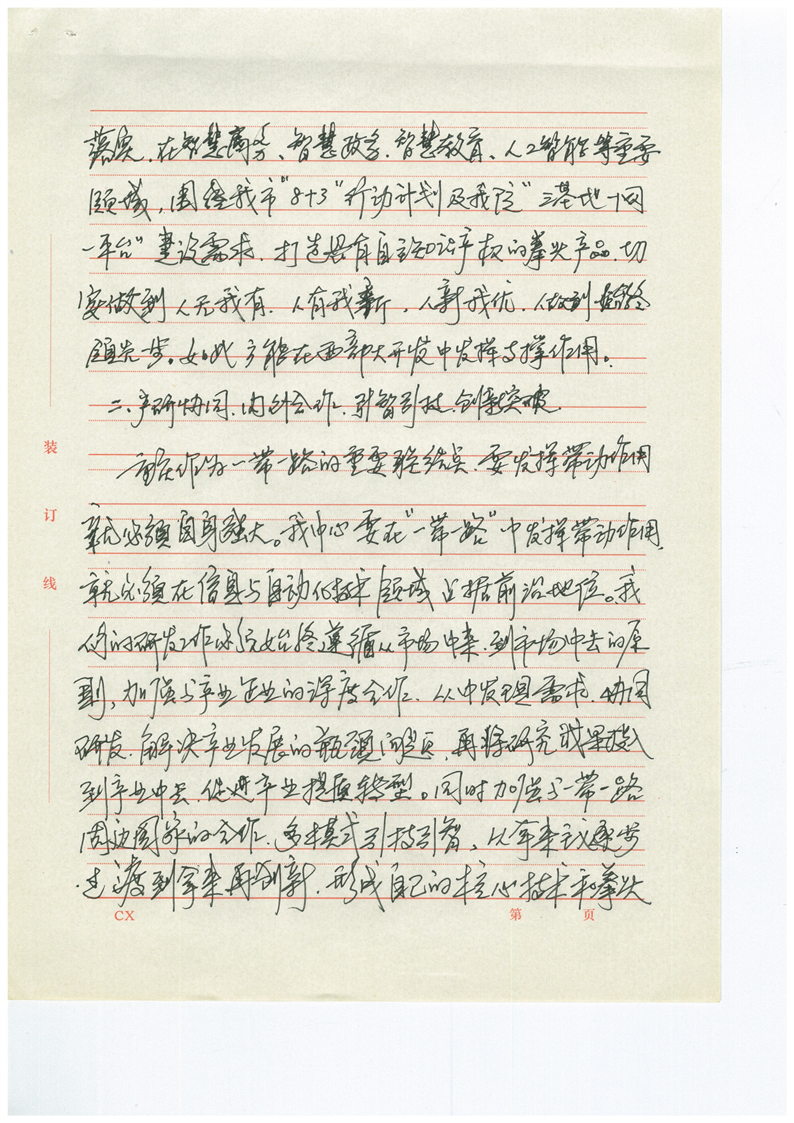 落实，在智慧商务、智慧政务、智慧教育、人工智能等重要
领域，围绕我市“8+3”行动计划及我院“三基地一园
一平台”建设需求，打造具有自主知识产权的拳头产品，切
实做到人无我有，人有我新，人新我优，做到始终
领先一步。如此方能在西部大开发中发挥支撑作用。
二、产研协同，内外合作，引智引技，创新突破
重庆作为一带一路的重要联结点，要发挥带动作用
就必须自身强大。我中心要在“一带一路”中发挥带动作用，
就必须在信息与自动化技术领域占据前沿地位。我
们的研发工作必须始终遵循从市场中来，到市场中去的原
则，加强与产业企业的深度合作，从中发现需求，协同
研发，解决产业发展的瓶颈问题，再将研究成果投入
到产业中去，促进产业提质转型。同时加强与一带一路
周边国家的合作，多模式引技引智，从拿来主义逐步
过渡到拿来再创新，形成自己的核心技术和拳头
装
订
线
CX 第 页